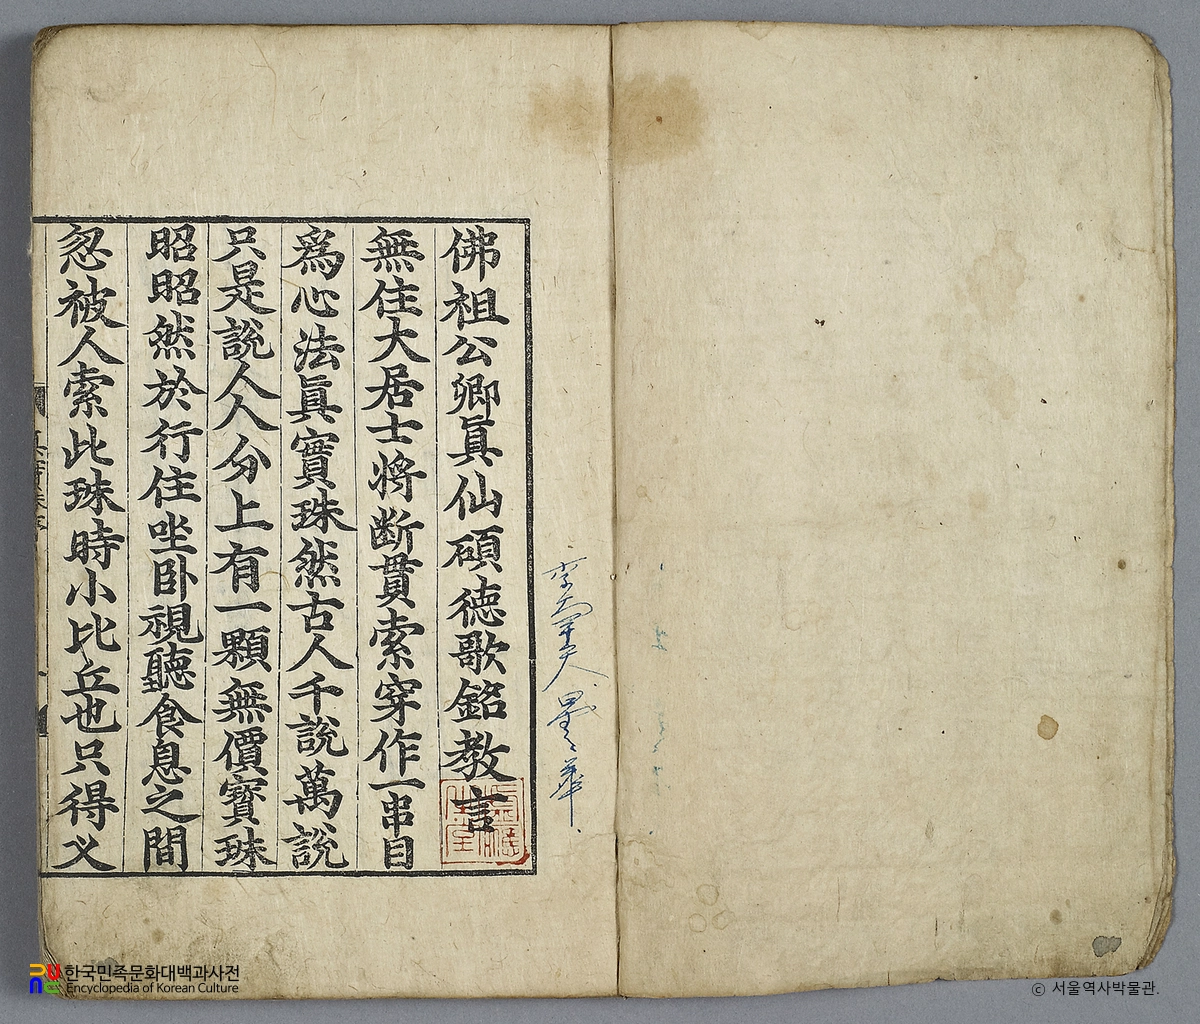 佛祖公卿眞仙碩德歌銘教言
無住大居士將断貫索穿作一串目
爲心法眞實珠然古人千說萬說
只是說人人分上有一顆無價寶珠
昭昭然於行住坐卧視聽食息之間
忽被人索此珠時小比丘也只得义
한국민족문화대백과사전
Encyclopedia of Korean Culture
ⓒ 서울역사박물관.